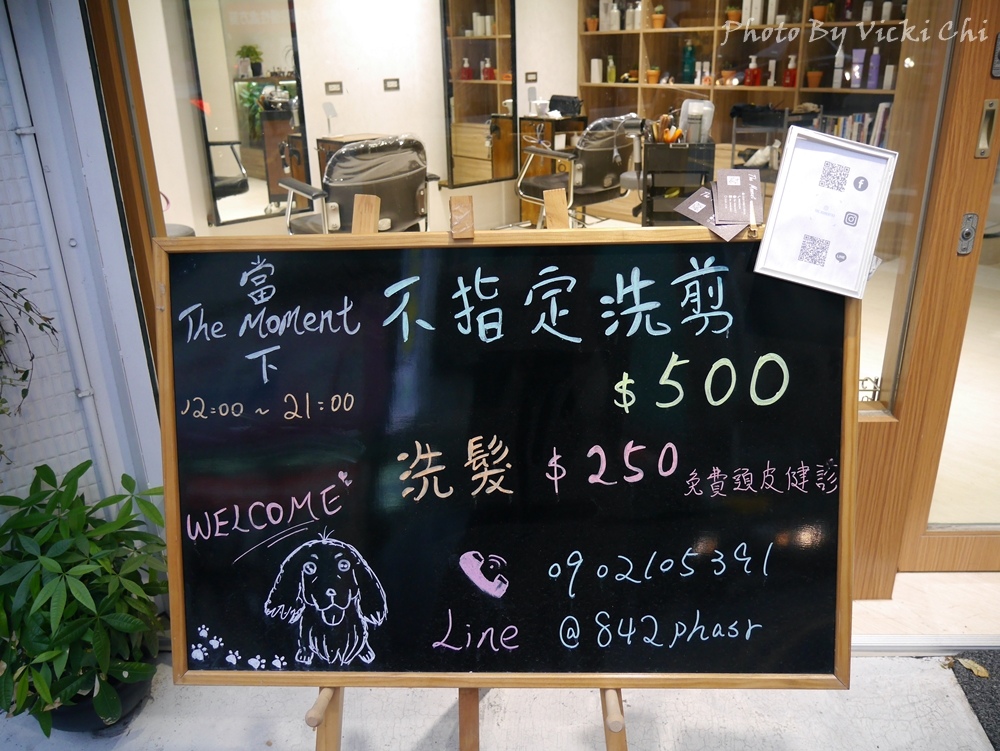 Photo By Vicki Chi
當
The Moment
下
12:00 ~ 21:00
WELCOME
不指定洗剪
$500
洗髮 $250 免費頭皮健診
0902105391
Line @842phasr